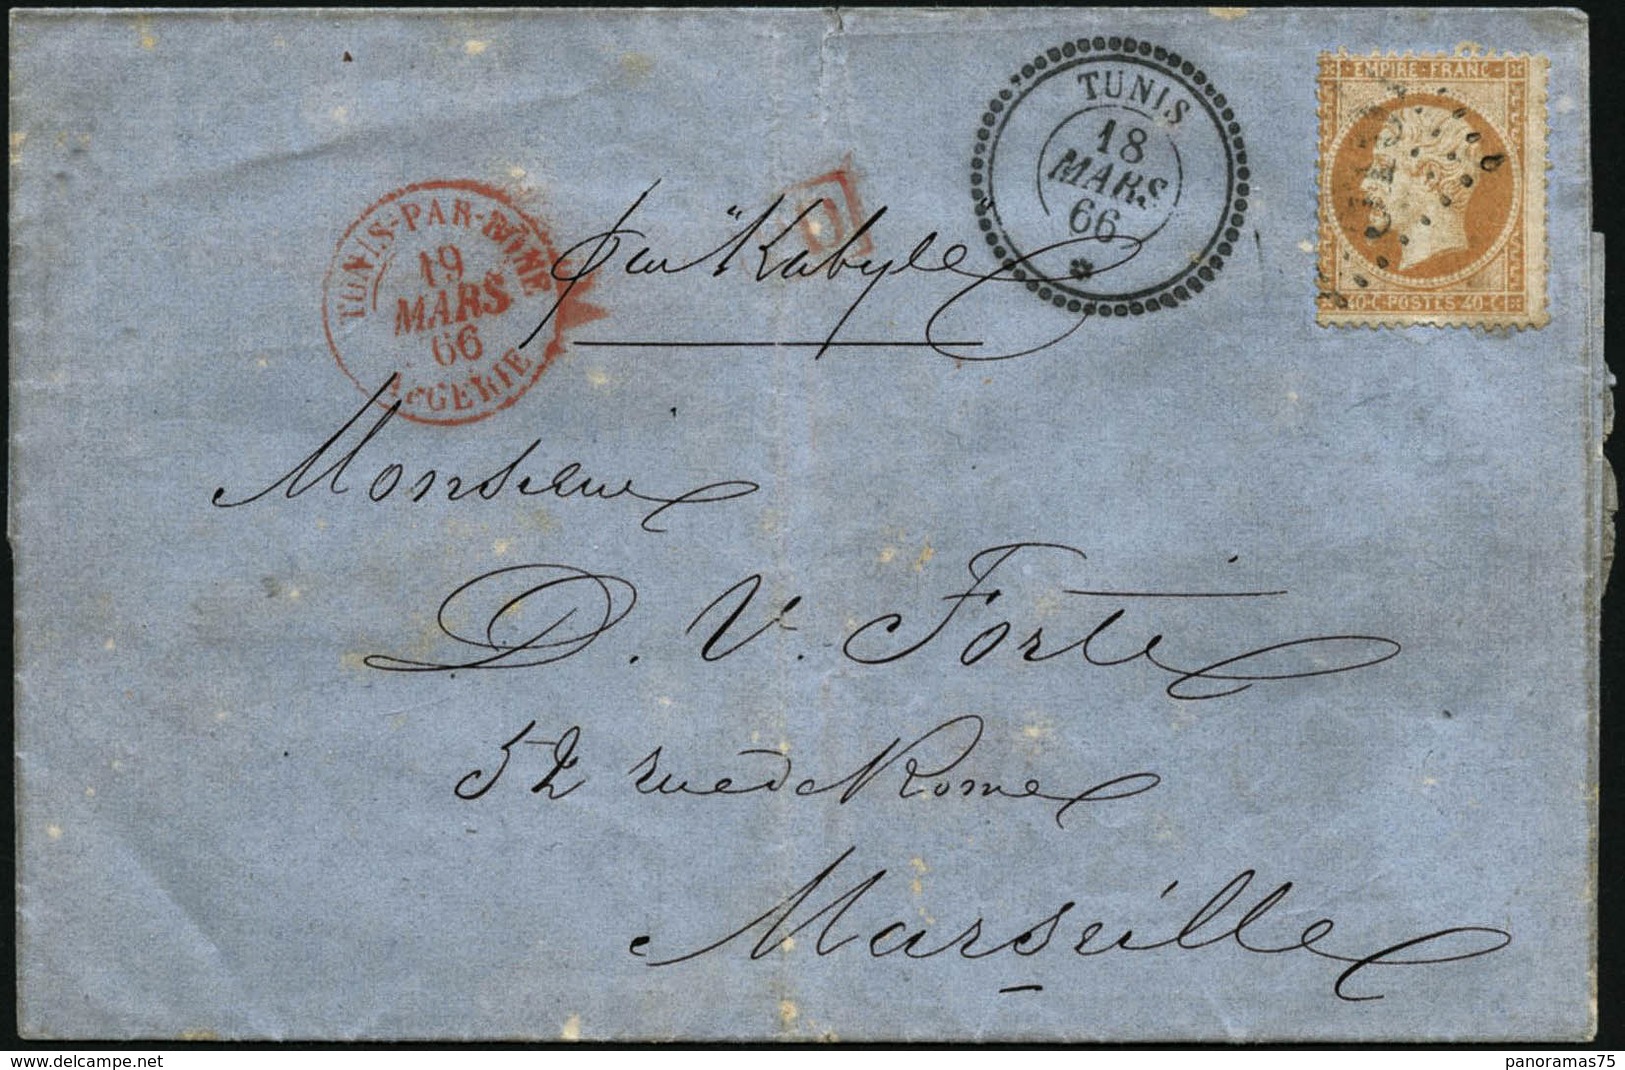 TUNIS
18
MARS
66
EMPIRE FRANC
40 C POSTES 40 C
TUNIS-PAR-BÔNE
19
MARS
66
ALGERIE
par "Kabyle"
PD
Monsieur
D. V. Forti
52 rue de Rome
Marseille
www.delcampe.net
panoramas75